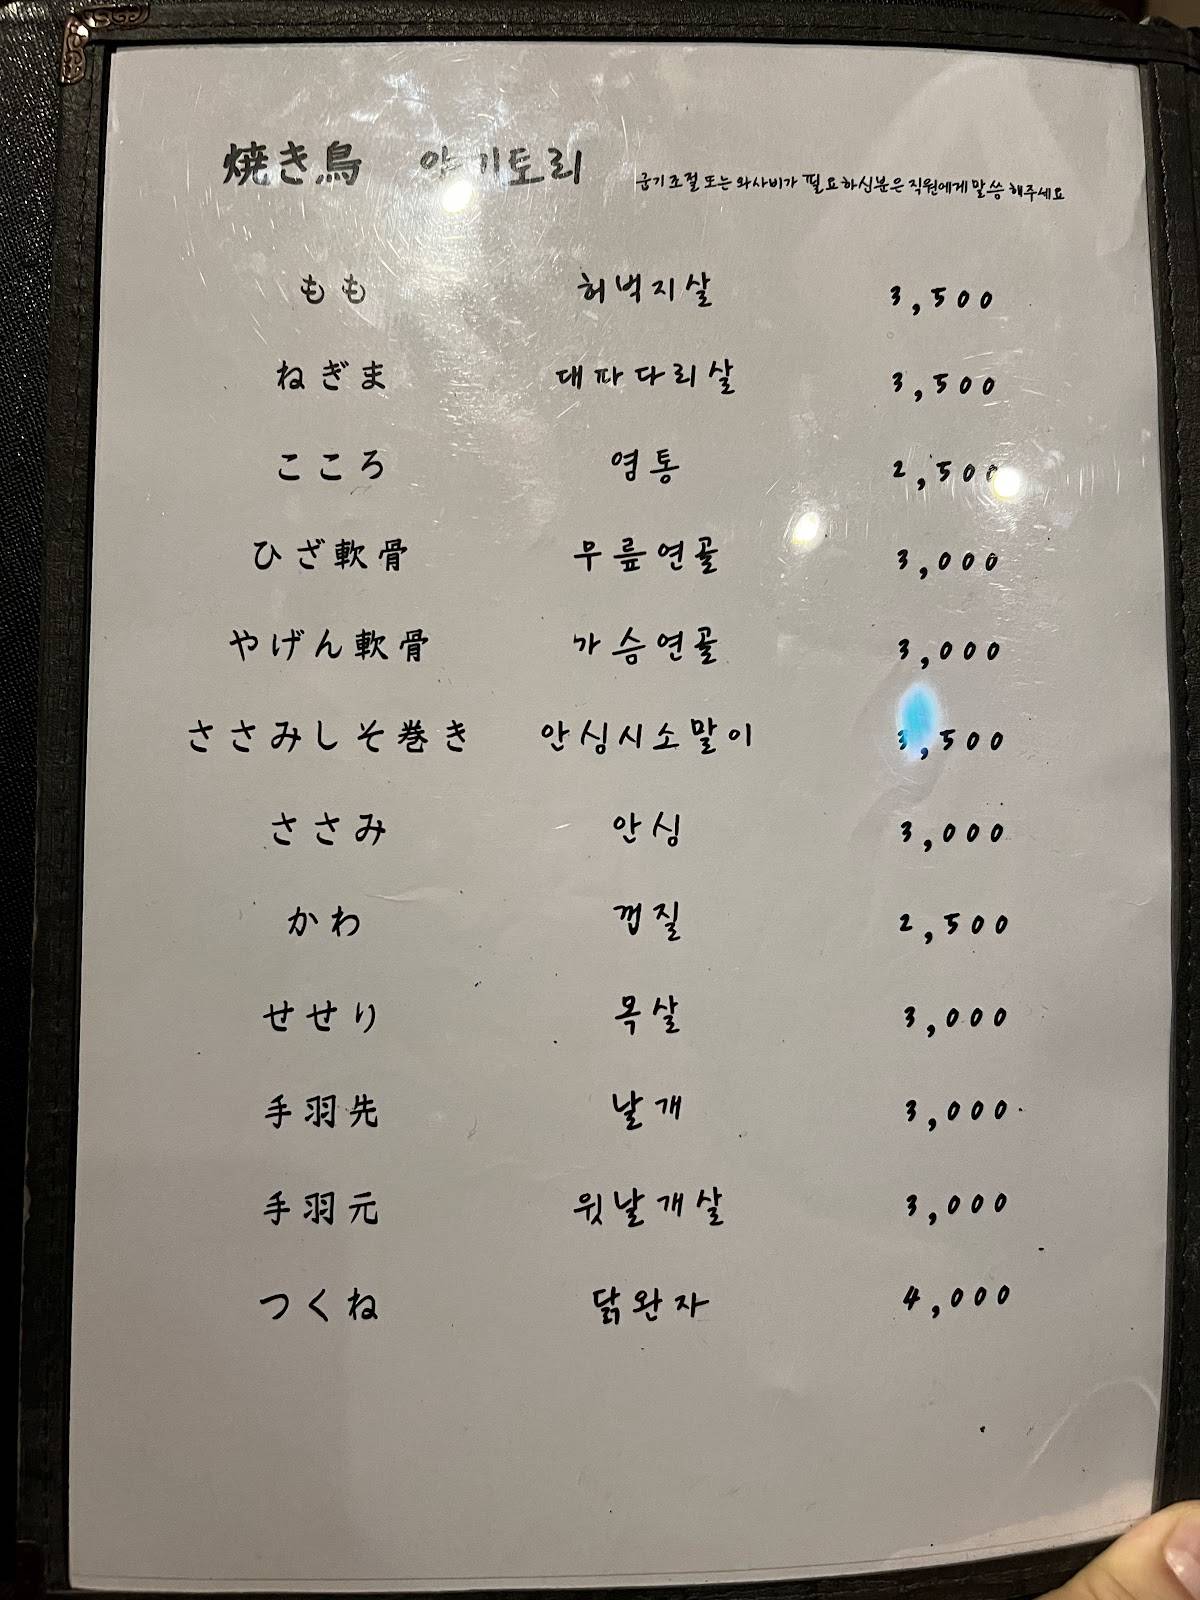 焼き鳥 야끼토리 굽기조절 또는 와사비가 필요하신분은 직원에게 말씀 해주세요
もも 허벅지살 3,500
ねぎま 대파다리살 3,500
こころ 염통 2,500
ひざ軟骨 무릎연골 3,000
やげん軟骨 가슴연골 3,000
ささみしそ巻き 안심시소말이 3,500
ささみ 안심 3,000
かわ 껍질 2,500
せせり 목살 3,000
手羽先 날개 3,000
手羽元 윗날개살 3,000
つくね 닭완자 4,000